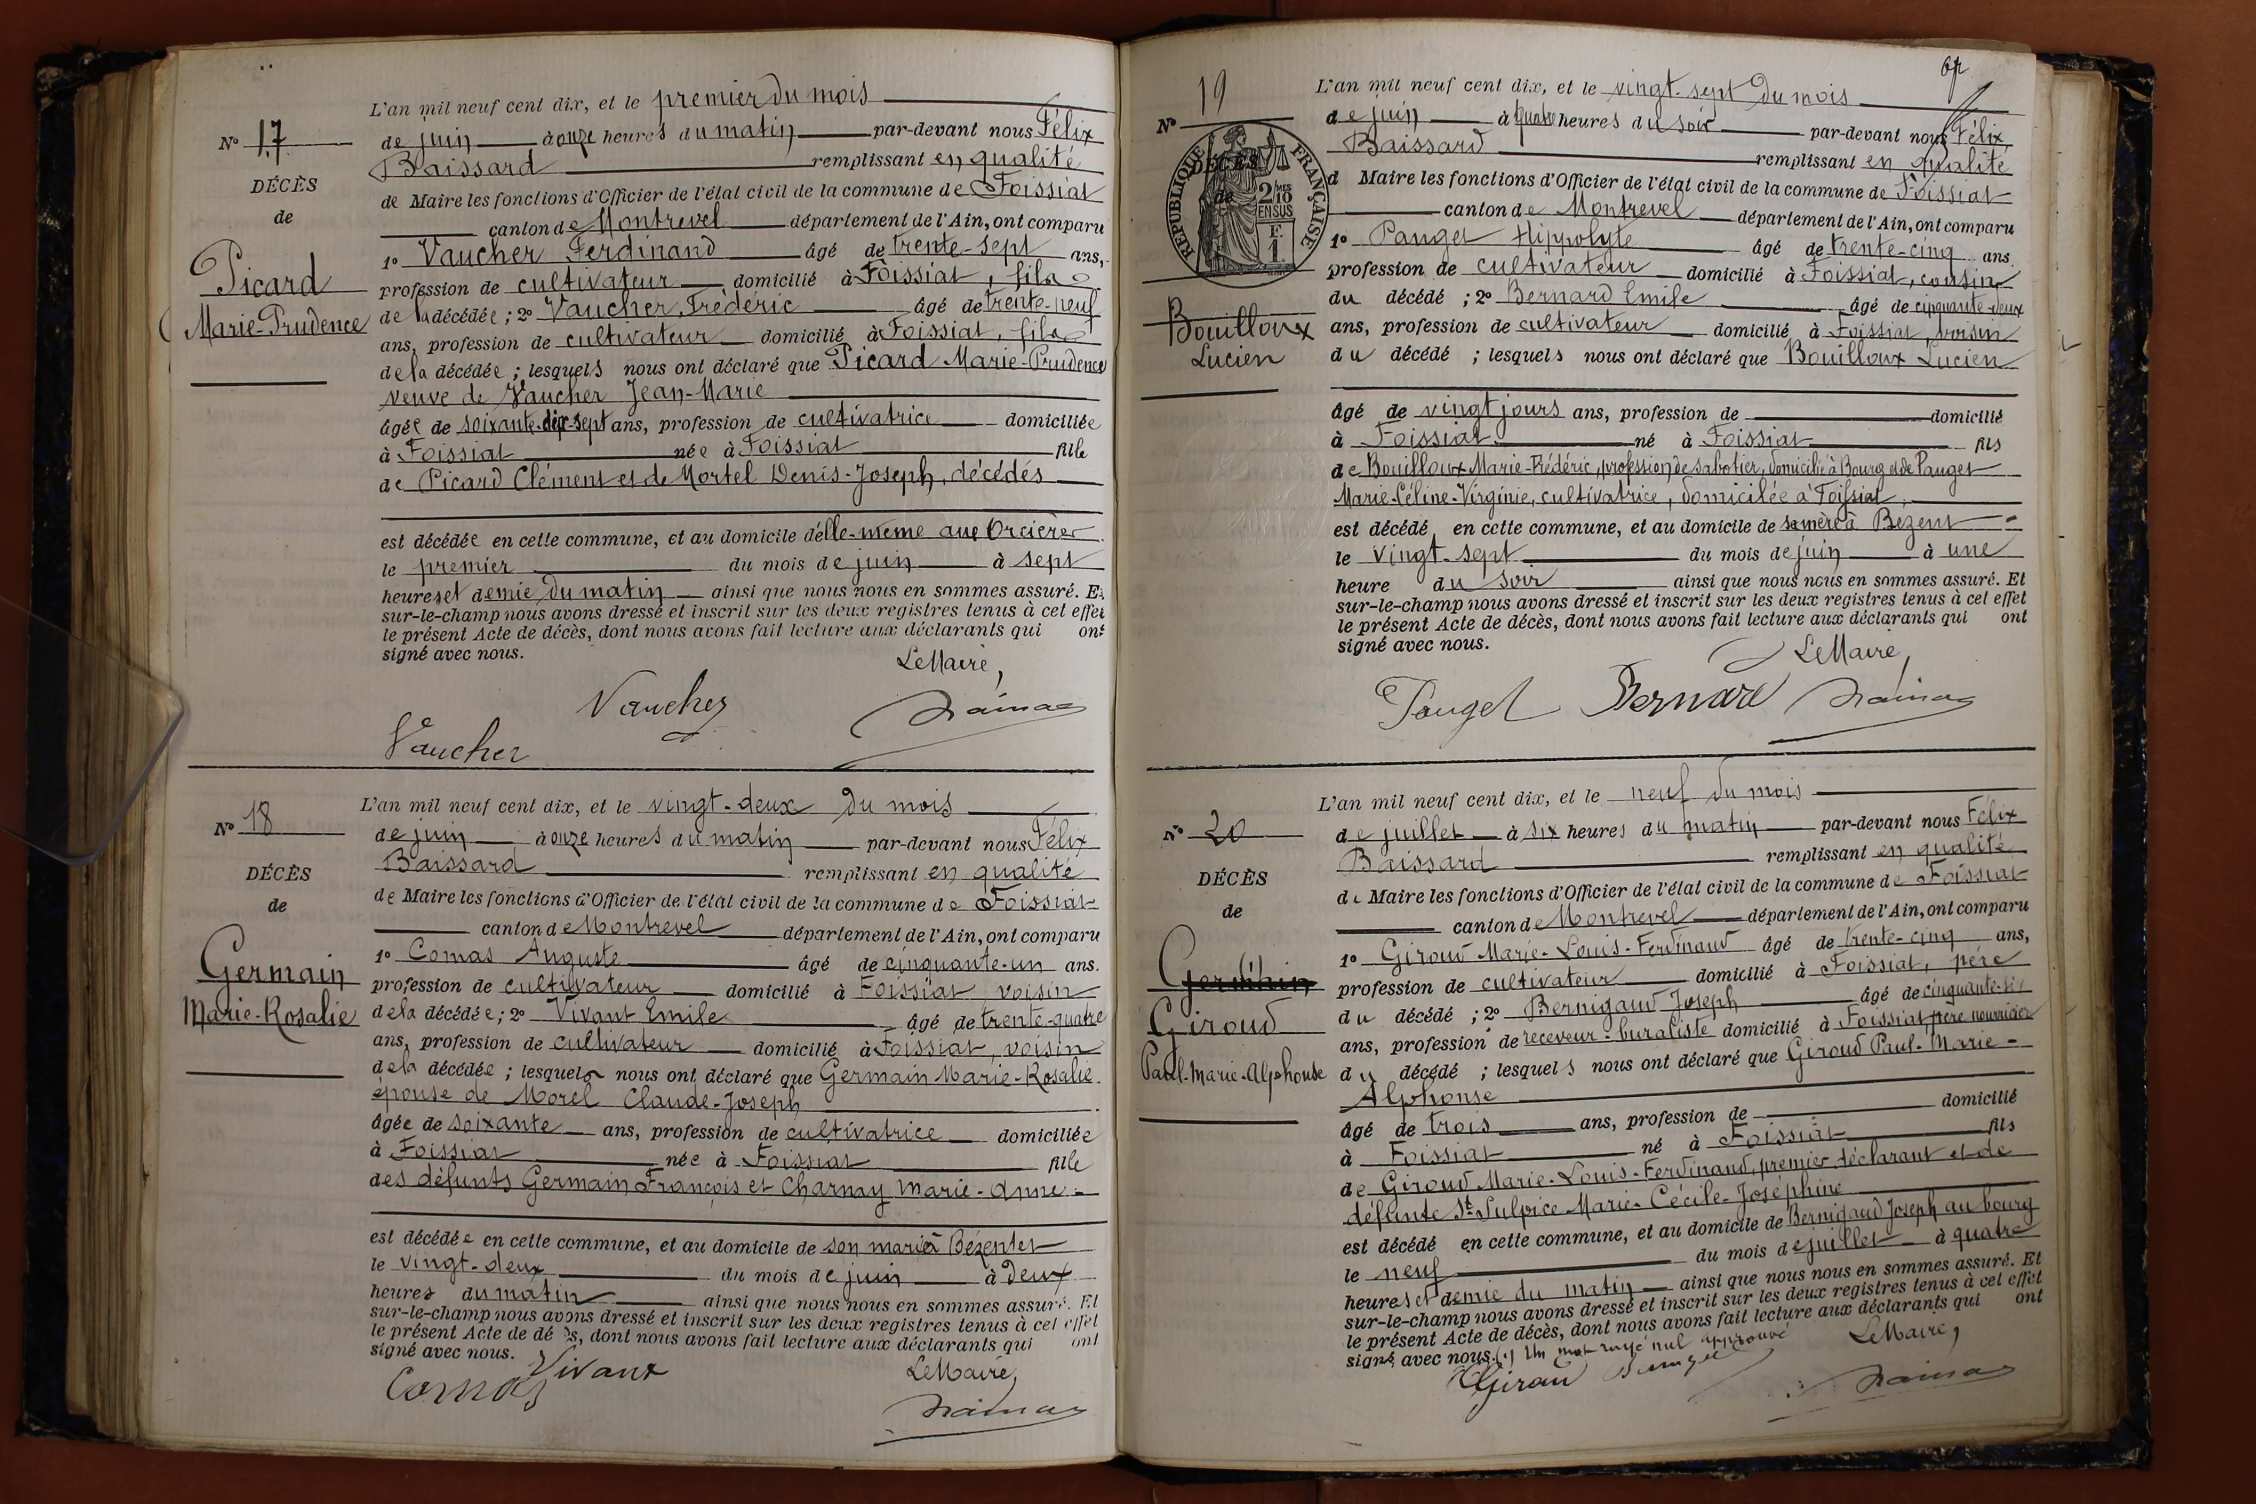 L'an mil neuf cent dix, et le premier du mois
N° 17
de juin à onze heures du matin par-devant nous Félix
Baissard remplissant en qualité
DÉCÈS
de Maire les fonctions d'Officier de l'état civil de la commune de Foissiat
de
canton de Montrevel département de l'Ain, ont comparu
1° Vaucher Ferdinand âgé de trente-sept ans,
Picard
profession de cultivateur domicilié à Foissiat, fils
Marie-Prudence
de la décédée ; 2° Vaucher Frédéric âgé de trente-neuf
ans, profession de cultivateur domicilié à Foissiat, fils
de la décédée ; lesquels nous ont déclaré que Picard Marie-Prudence
veuve de Vaucher Jean-Marie
âgée de soixante-dix-sept ans, profession de cultivatrice domiciliée
à Foissiat née à Foissiat fille
de Picard Clément et de Mortel Denis-Joseph, décédés
est décédée en cette commune, et au domicile d'elle-même aux Orcières
le premier du mois de juin à sept
heures et demie du matin ainsi que nous nous en sommes assuré. Et
sur-le-champ nous avons dressé et inscrit sur les deux registres tenus à cet effet
le présent Acte de décès, dont nous avons fait lecture aux déclarants qui ont
signé avec nous.
Le Maire,
Vaucher
Vaucher
L'an mil neuf cent dix, et le vingt-deux du mois
N° 18
de juin à onze heures du matin par-devant nous Félix
Baissard remplissant en qualité
DÉCÈS
de Maire les fonctions d'Officier de l'état civil de la commune de Foissiat
de
canton de Montrevel département de l'Ain, ont comparu
1° Comas Auguste âgé de cinquante-un ans.
Germain
profession de cultivateur domicilié à Foissiat voisin
Marie-Rosalie
de la décédée ; 2° Vivant Emile âgé de trente-quatre
ans, profession de cultivateur domicilié à Foissiat, voisin
de la décédée ; lesquels nous ont déclaré que Germain Marie-Rosalie
épouse de Morel Claude-Joseph
âgée de soixante ans, profession de cultivatrice domiciliée
à Foissiat née à Foissiat fille
des défunts Germain François et Charnay Marie-Anne
est décédée en cette commune, et au domicile de son mari à Bézentet
le vingt-deux du mois de juin à deux
heures du matin ainsi que nous nous en sommes assuré. Et
sur-le-champ nous avons dressé et inscrit sur les deux registres tenus à cet effet
le présent Acte de décès, dont nous avons fait lecture aux déclarants qui ont
signé avec nous.
Vivant
Comas
Le Maire,
L'an mil neuf cent dix, et le vingt-sept du mois
N° 19
de juin à quatre heures du soir par-devant nous Félix
Baissard remplissant en qualité
DÉCÈS
de
RÉPUBLIQUE FRANÇAISE
2/10 EN SUS
F. 1.
d Maire les fonctions d'Officier de l'état civil de la commune de Foissiat
canton de Montrevel département de l'Ain, ont comparu
1° Pauget Hippolyte âgé de trente-cinq ans
profession de cultivateur domicilié à Foissiat, cousin
du décédé ; 2° Bernard Emile âgé de cinquante-deux
Bouilloux
Lucien
ans, profession de cultivateur domicilié à Foissiat, voisin
du décédé ; lesquels nous ont déclaré que Bouilloux Lucien
âgé de vingt jours ans, profession de domicilié
à Foissiat né à Foissiat fils
de Bouilloux Marie-Frédéric, profession de sabotier, domicilié à Bourg et de Pauget
Marie-Céline-Virginie, cultivatrice, domicilée à Foissiat,
est décédé en cette commune, et au domicile de sa mère à Bézent
le vingt-sept du mois de juin à une
heure du soir ainsi que nous nous en sommes assuré. Et
sur-le-champ nous avons dressé et inscrit sur les deux registres tenus à cet effet
le présent Acte de décès, dont nous avons fait lecture aux déclarants qui ont
signé avec nous.
Le Maire,
Pauget Bernard
L'an mil neuf cent dix, et le neuf du mois
N° 20
de juillet à six heures du matin par-devant nous Félix
Baissard remplissant en qualité
DÉCÈS
de Maire les fonctions d'Officier de l'état civil de la commune de Foissiat
de
canton de Montrevel département de l'Ain, ont comparu
1° Giroud Marie-Louis-Ferdinand âgé de trente-cinq ans,
Germain
profession de cultivateur domicilié à Foissiat, père
Giroud
du décédé ; 2° Bernigaud Joseph âgé de cinquante-six
ans, profession de receveur-buraliste domicilié à Foissiat, père nourricier
Paul-Marie-Alphonse
du décédé ; lesquels nous ont déclaré que Giroud Paul-Marie-
Alphonse
âgé de trois ans, profession de domicilié
à Foissiat né à Foissiat fils
de Giroud Marie-Louis-Ferdinand, premier déclarant et de
défunte St Sulpice Marie-Cécile-Joséphine
est décédé en cette commune, et au domicile de Bernigaud Joseph au bourg
le neuf du mois de juillet à quatre
heures et demie du matin ainsi que nous nous en sommes assuré. Et
sur-le-champ nous avons dressé et inscrit sur les deux registres tenus à cet effet
le présent Acte de décès, dont nous avons fait lecture aux déclarants qui ont
signé avec nous. (1) Un mot rayé nul approuvé
Le Maire,
Giroud